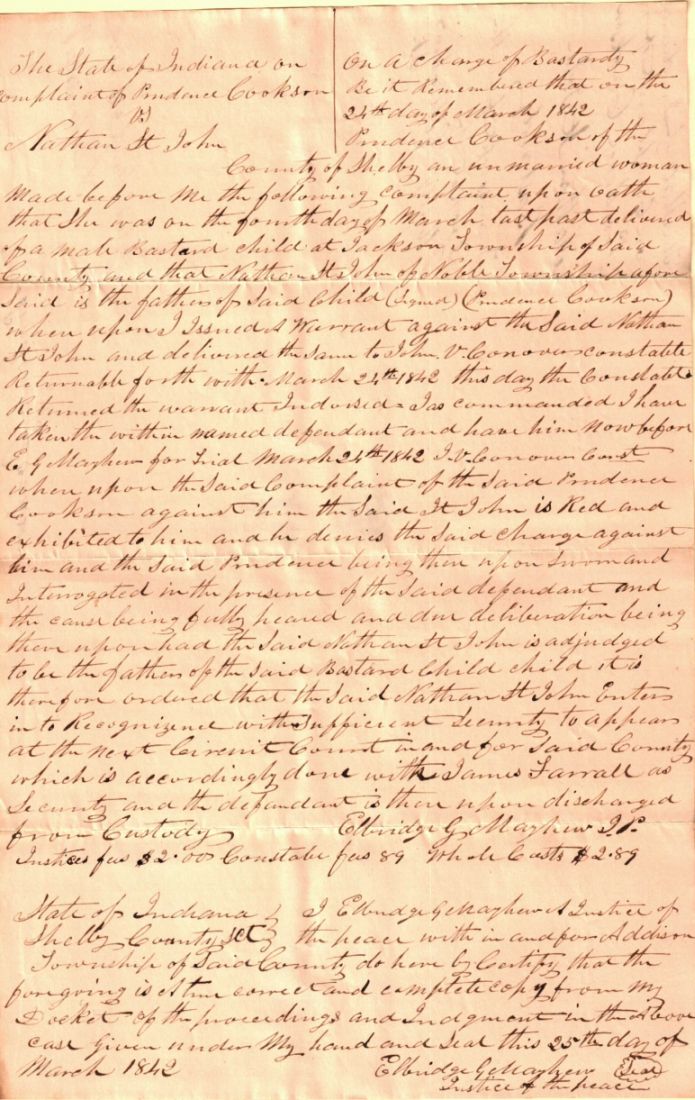 The State of Indiana on
Complaint of Prudence Cookson
vs
Nathan St John
On A charge of Bastardy
Be it Remembered that on the
24th day of March 1842
Prudence Cookson of the
County of Shelby an unmarried woman
Made before me the following complaint upon oath
that She was on the fourth day of March last past delivered
of a male Bastard child at Jackson Township of Said
County and that Nathan St John of Noble Township afore
Said is the father of Said Child (Signed) (Prudence Cookson)
when upon I Issued A Warrant against the Said Nathan
St John and delivered the Same to John, V. Conover constable
Returnable forth with. March 24th 1842 this day the Constable
Returned the warrant Indorsed = I as commanded I have
taken the within named defendant and have him now before
E. G Mayhew for Trial March 24th 1842 J. V. Conover Const
when upon the Said Complaint of the Said Prudence
Cookson against him the Said St John is Red and
exhibited to him and he denies the Said charge against
him and the Said Prudence being then upon Sworn and
Interrogated in the presence of the Said defendant and
the cause being fully heared and due deliberation being
there upon had the Said Nathan St John is adjudged
to be the father of the Said Bastard Child child it is
therefore ordered that the Said Nathan St John Enters
in to Recognizence with Sufficient Security to appear
at the next Circuit Court in and for Said County
which is accordingly done with James Farrall as
Security and the defendant is then upon discharged
from Custody Elbridge G Mayhew J. P.
Justices fees $2.00 Constabe fees 89 Whole Costs $2.89
State of Indiana
Shelby County Sct
I Elbridge G Mayhew A Justice of
the peace with in and for Addison
Township of Said County do here by Certify that the
foregoing is A true correct and complete copy from my
Docket of the proceedings and Judgment in the Above
case Given under My hand and Seal this 25th day of
March 1842 Elbridge G Mayhew Seal
Justice of the peace